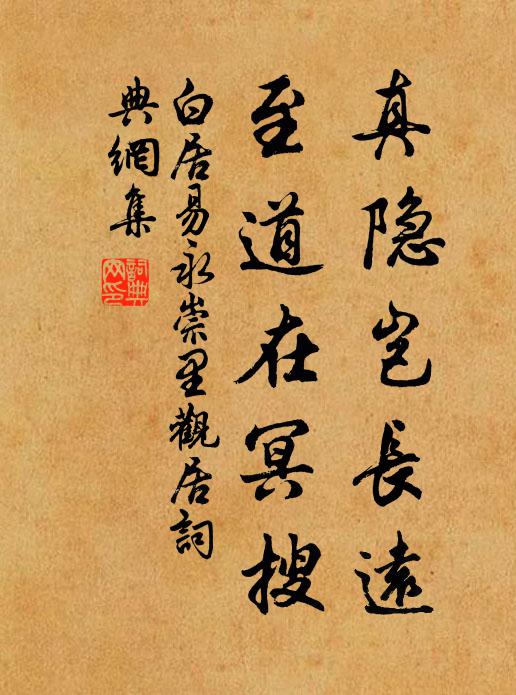 真隐岂長遠
至道在冥搜
白居易永崇里觀居詞
典網集
詞典网印